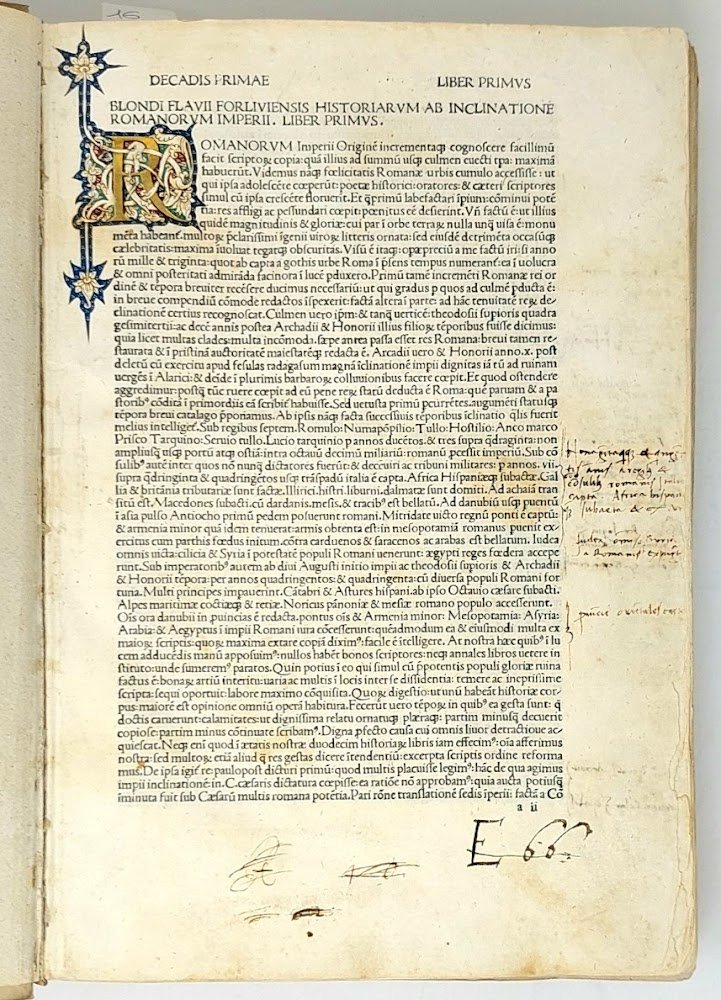 16
DECADIS PRIMAE LIBER PRIMVS
BLONDI FLAVII FORLIVIENSIS HISTORIARVM AB INCLINATIONE
ROMANORVM IMPERII. LIBER PRIMVS.
ROMANORVM Imperii Originē incrementaq; cognoscere facillimū
facit scriptoꝝ copia: quā illius ad summū usq; culmen euecti tpa: maximā
habuerūt. Videmus nāq; fœlicitatis Romanæ urbis cumulo accessisse: ut
qui ipsa adolescēte cœperūt: poetæ historici: oratores: & cæteri scriptores
simul cū ipsa crescēte floruerit. Et q̄primū labefactari īpium: cōminui potē
tia: res affligi ac pessundari cœpit: pœnitus eē desierint. Vn̄ factū ē: ut illius
quidē magnitudinis & gloriæ: cui par ī orbe terraꝝ nulla unq̄ uisa ē: monu
mēta habeant̄. multoꝝ & p̄clarissimi īgenii uiroꝝ litteris ornata: sed eiusdē detrimēta occasūq;
cælebritatis: maxima īuoluat tegatq; obscuritas. Visū ē itaq; opæpreciū a me factū iri: si anno
rū mille & triginta: quot ab capta a gothis urbe Roma ī p̄sens tempus numerant̄: ea ī uolucra
& omni posteritati admirāda facinora ī lucē pduxero. Primū tamē incremēti Romanæ rei or
dinē & tēpora breuiter recēsere ducimus necessariū: ut qui gradus p quos ad culmē pducta ē:
in breue compendiū cōmode redactos īspexerit: factā altera ī parte: ad hāc tenuitatē reꝝ de
clinationē certius recognoscat. Culmen uero ip̄m: & tanq̄ uerticē: theodosii supioris quadra
gesimitertii: ac decē annis postea Archadii & Honorii illius filioꝝ tēporibus fuisse dicimus:
quia licet multas clades: multa incōmoda. sæpe antea passa esset res Romana: breui tamen re-
staurata & ī pristinā auctoritatē maiestatēq; redacta ē. Arcadii uero & Honorii anno.x. post
deletū cū exercitu apud fesulas radagasum magnā īclinationē impii dignitas iā tū ad ruinam
uergēs ī Alarici: & deīde ī plurimis barbaroꝝ colluuionibus facere cœpit. Et quod ostendere
aggredimur: postq̄ tūc ruere cœpit ad eū pene reꝝ statū deducta ē Roma: quē partum & a pa
storibꝰ cōditā ī primordiis eā scribūt habuisse. Sed uetusta primū pcurrētes. augumēti statusq;
tēpora breui catalago p̄ponamus. Ab ipsis nāq; facta successiuis tēporibus īclinatio q̄lis fuerit
melius intelliget̄. Sub regibus septem. Romulo: Numapōpilio: Tullo: Hostilio: Anco marco
Prisco Tarquino: Seruio tullo. Lucio tarquinio p annos ducētos. & tres supra q̄draginta: non
ampliusq̄ usq; portū atq; ostiā: intra octauū decimū miliariū: romanū pcessit imperiū. Sub cō
sulibꝰ autē inter quos nō nunq̄ dictatores fuerūt: & decēuiri ac tribuni militares: p annos. vii.
supra q̄dringinta & quadringētos usq; trāspadū italia ē capta. Africa Hispaniæq; subactæ. Gal
lia & britānia tributariæ sunt factæ. Illirici. histri. liburni. dalmatæ sunt domiti. Ad achaiā tran
sitū est. Macedones subacti. cū dardanis. mesis. & tracibꝰ est bellatū. Ad danubiū usq; puentū
ī asia pulso Antiocho primū pedem posuerunt romani. Mitridate uicto regnū ponti ē captū:
& armenia minor quā idem tenuerat: armis obtenta est: in mesopotamiā romanus puenit ex-
ercitus cum parthis fœdus initum. cōtra carduenos & saracenos ac arabas est bellatum. Iudæa
omnis uicta: cilicia & Syria ī potestatē populi Romani uenerunt: ægypti reges fœdera accepe
runt. Sub imperatoribꝰ autem ab diui Augusti initio impii ac theodosii supioris & Archadii
& Honorii tēpora: per annos quadringentos: & quadringenta: cū diuersa populi Romani for
tuna. Multi principes impauerint. Cātabri & Astures hispani. ab ipso Octauio cæsare subacti.
Alpes maritimæ coctiæq; & retiæ. Noricus pānoniæ & mesiæ romano populo accesserunt.
Ois ora danubii in puincias ē redacta. pontus oīs & Armenia minor: Mesopotamia: Asyria:
Arabia: & Aegyptus ī impii Romani iura cōcesserunt: quēadmodum ea & eiusmodi multa ex
maioꝝ & scriptis: quoꝝ maxima extare copiā diximꝰ: facile ē ītelligere. At nostra hæc quibꝰ ī lu
cem adducēdis manū apposuimꝰ: nullos habēt bonos scriptores: neq; annales libros uetere in
stituto: unde sumeremꝰ paratos. Quin potius ī eo qui simul cū p̄potentis populi gloriæ ruina
factus ē: bonaꝝ artiū interitu: uaria ac multis ī locis inter se dissidentia: temere ac ineptissime
scripta: sequi oportuit: labore maximo cōquisita. Quoꝝ digestio: ut unū habeāt historiæ cor-
pus: maiore est opinione omniū opera habitura. Fecerūt uero tēpoꝝ in quibꝰ ea gesta sunt: q̄
doctis caruerunt: calamitates: ut dignissima relatu ornatuq; plæraq; partim minusq̄ decuerit
copiose: partim minus cōtinuate scribamꝰ. Digna pfecto causa cui omnis liuor detractioue ac-
quiescat. Neq; eni quod ī ætatis nostræ duodecim historiaꝝ libris iam effecimꝰ: oīa afferimus
nostra: sed multoꝝ: etiā aliud q̄ res gestas dicere ītendentiū: excerpta scriptis ordine reforma
mus. De ipsa igit̄ re: paulopost dicturi primū: quod multis placuisse legimꝰ: hāc de qua agimus
impii inclinationē in. C. cæsaris dictatura cœpisse: ea ratiōe nō approbamꝰ: quia aucta potiusq̄
īminuta fuit sub Cæsarū multis romana potētia. Pari rōne translationē sedis īperii: factā a Cō
a ii
E 66.